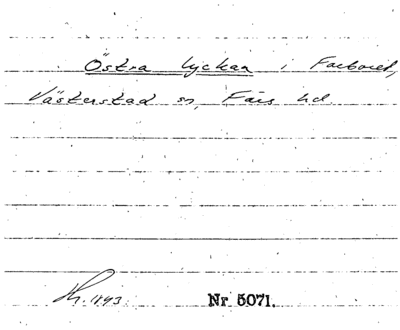 Östra lyckan i
Västerstad sn, Färs hd
Nr 5071.